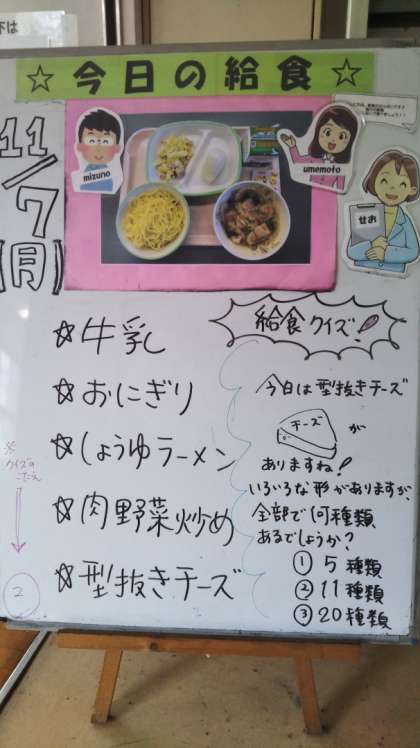 下は
☆今日の給食☆
11/7(月)
mizuno
umemoto
せお
☆牛乳
☆おにぎり
☆しょうゆラーメン
☆肉野菜炒め
☆型抜きチーズ
※クイズのこたえ
2
給食クイズ!
今日は型抜きチーズ
チーズ
が
ありますね!
いろいろな形がありますが、
全部で何種類
あるでしょうか?
① 5種類
② 11種類
③ 20種類